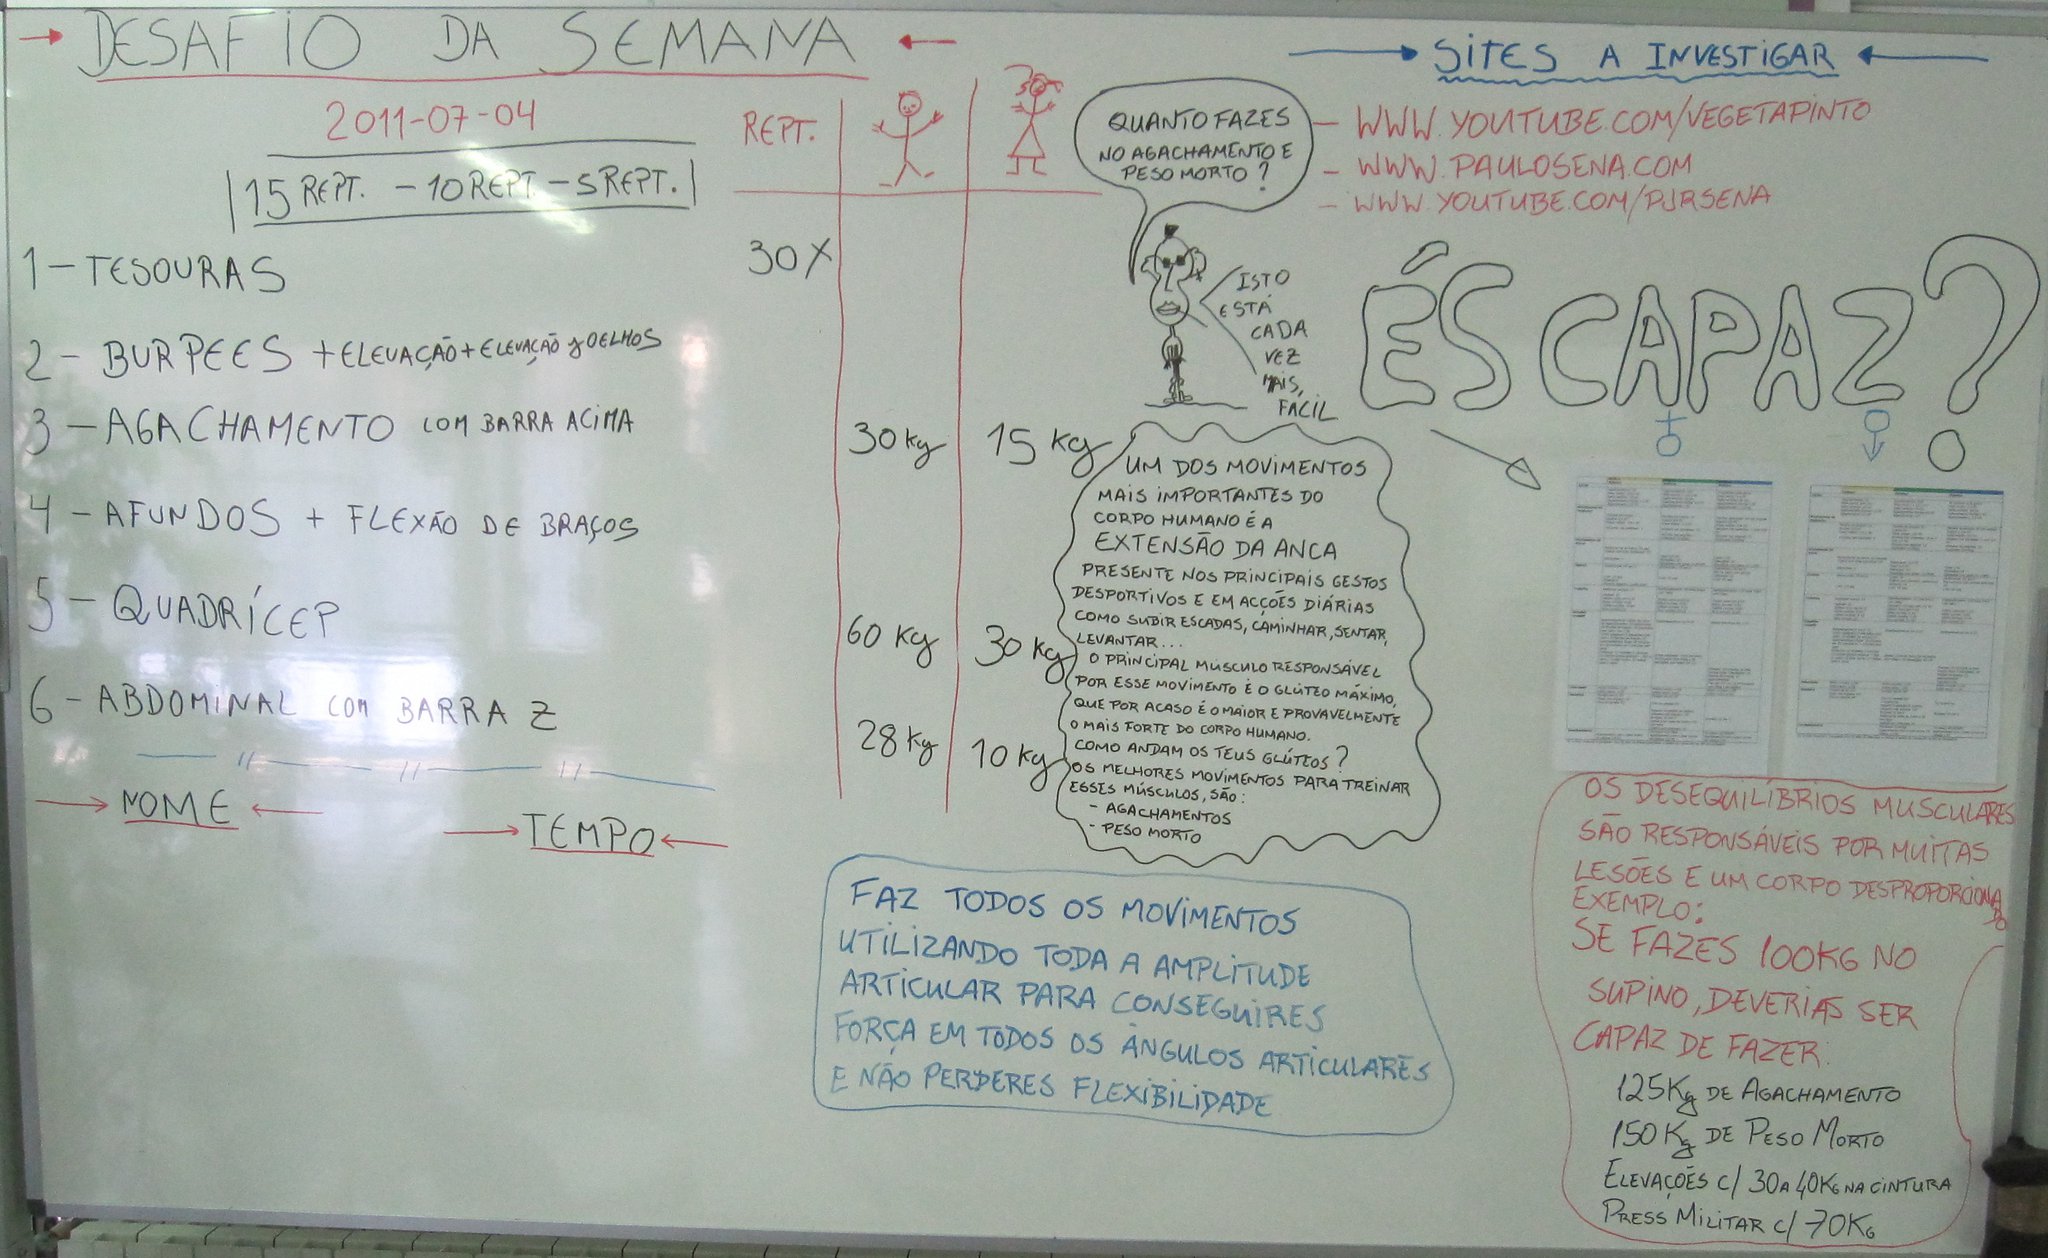 DESAFIO DA SEMANA
2011-07-04
15 REPT. - 10 REPT - 5 REPT.
REPT.
1 - TESOURAS 30X
2 - BURPEES + ELEVAÇÃO + ELEVAÇÃO JOELHOS
3 - AGACHAMENTO COM BARRA ACIMA 30 kg 15 kg
4 - AFUNDOS + FLEXÃO DE BRAÇOS
5 - QUADRÍCEP 60 kg 30 kg
6 - ABDOMINAL COM BARRA Z 28 kg 10 kg
NOME
TEMPO
QUANTO FAZES
NO AGACHAMENTO E
PESO MORTO?
ISTO
ESTÁ
CADA
VEZ
MAIS,
FÁCIL
UM DOS MOVIMENTOS
MAIS IMPORTANTES DO
CORPO HUMANO É A
EXTENSÃO DA ANCA
PRESENTE NOS PRINCIPAIS GESTOS
DESPORTIVOS E EM ACÇÕES DIÁRIAS
COMO SUBIR ESCADAS, CAMINHAR, SENTAR,
LEVANTAR...
O PRINCIPAL MÚSCULO RESPONSÁVEL
POR ESSE MOVIMENTO É O GLÚTEO MÁXIMO,
QUE POR ACASO É O MAIOR E PROVAVELMENTE
O MAIS FORTE DO CORPO HUMANO.
COMO ANDAM OS TEUS GLÚTEOS?
OS MELHORES MOVIMENTOS PARA TREINAR
ESSES MÚSCULOS, SÃO:
- AGACHAMENTOS
- PESO MORTO
FAZ TODOS OS MOVIMENTOS
UTILIZANDO TODA A AMPLITUDE
ARTICULAR PARA CONSEGUIRES
FORÇA EM TODOS OS ÂNGULOS ARTICULARES
E NÃO PERDERES FLEXIBILIDADE
SITES A INVESTIGAR
- WWW.YOUTUBE.COM/VEGETAPINTO
- WWW.PAULOSENA.COM
- WWW.YOUTUBE.COM/PJRSENA
ÉS CAPAZ?
OS DESEQUILÍBRIOS MUSCULARES
SÃO RESPONSÁVEIS POR MUITAS
LESÕES E UM CORPO DESPROPORCIONADO
EXEMPLO:
SE FAZES 100KG NO
SUPINO, DEVERIAS SER
CAPAZ DE FAZER:
125Kg DE AGACHAMENTO
150 Kg DE PESO MORTO
ELEVAÇÕES C/ 30 A 40KG NA CINTURA
PRESS MILITAR C/ 70KG